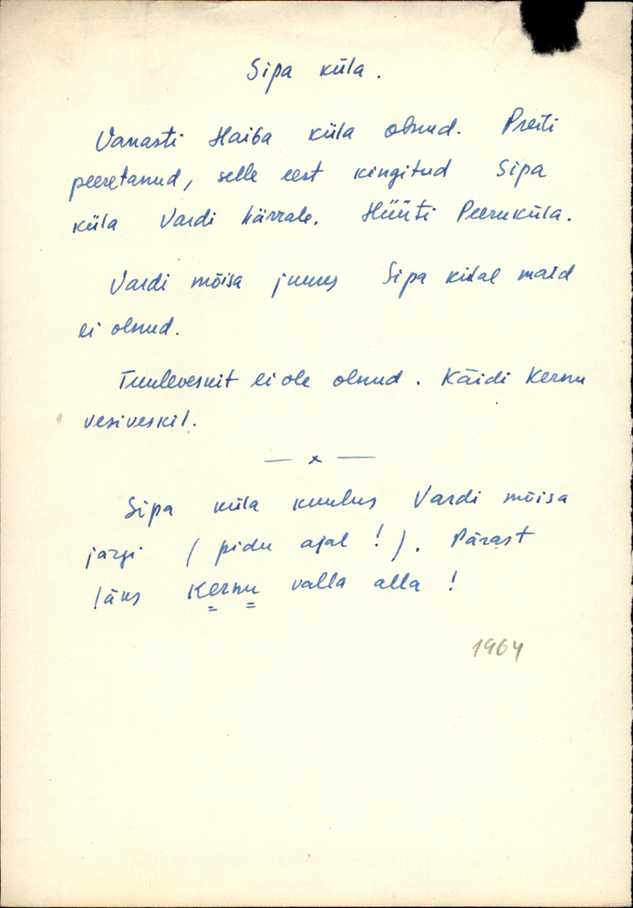 Sipa küla.
Vanasti Haiba küla olnud. Preili
peeretanud, selle eest kingitud Sipa
küla Vardi härrale. Hüüti Peeruküla.
Vardi mõisa juures Sipa külal maid
ei olnud.
Tuuleveskit ei ole olnud. Käidi Kernu
vesiveskil.
— x —
Sipa küla kuulus Vardi mõisa
järgi (pidu ajal!). Pärast
läks Kernu valla alla!
1964